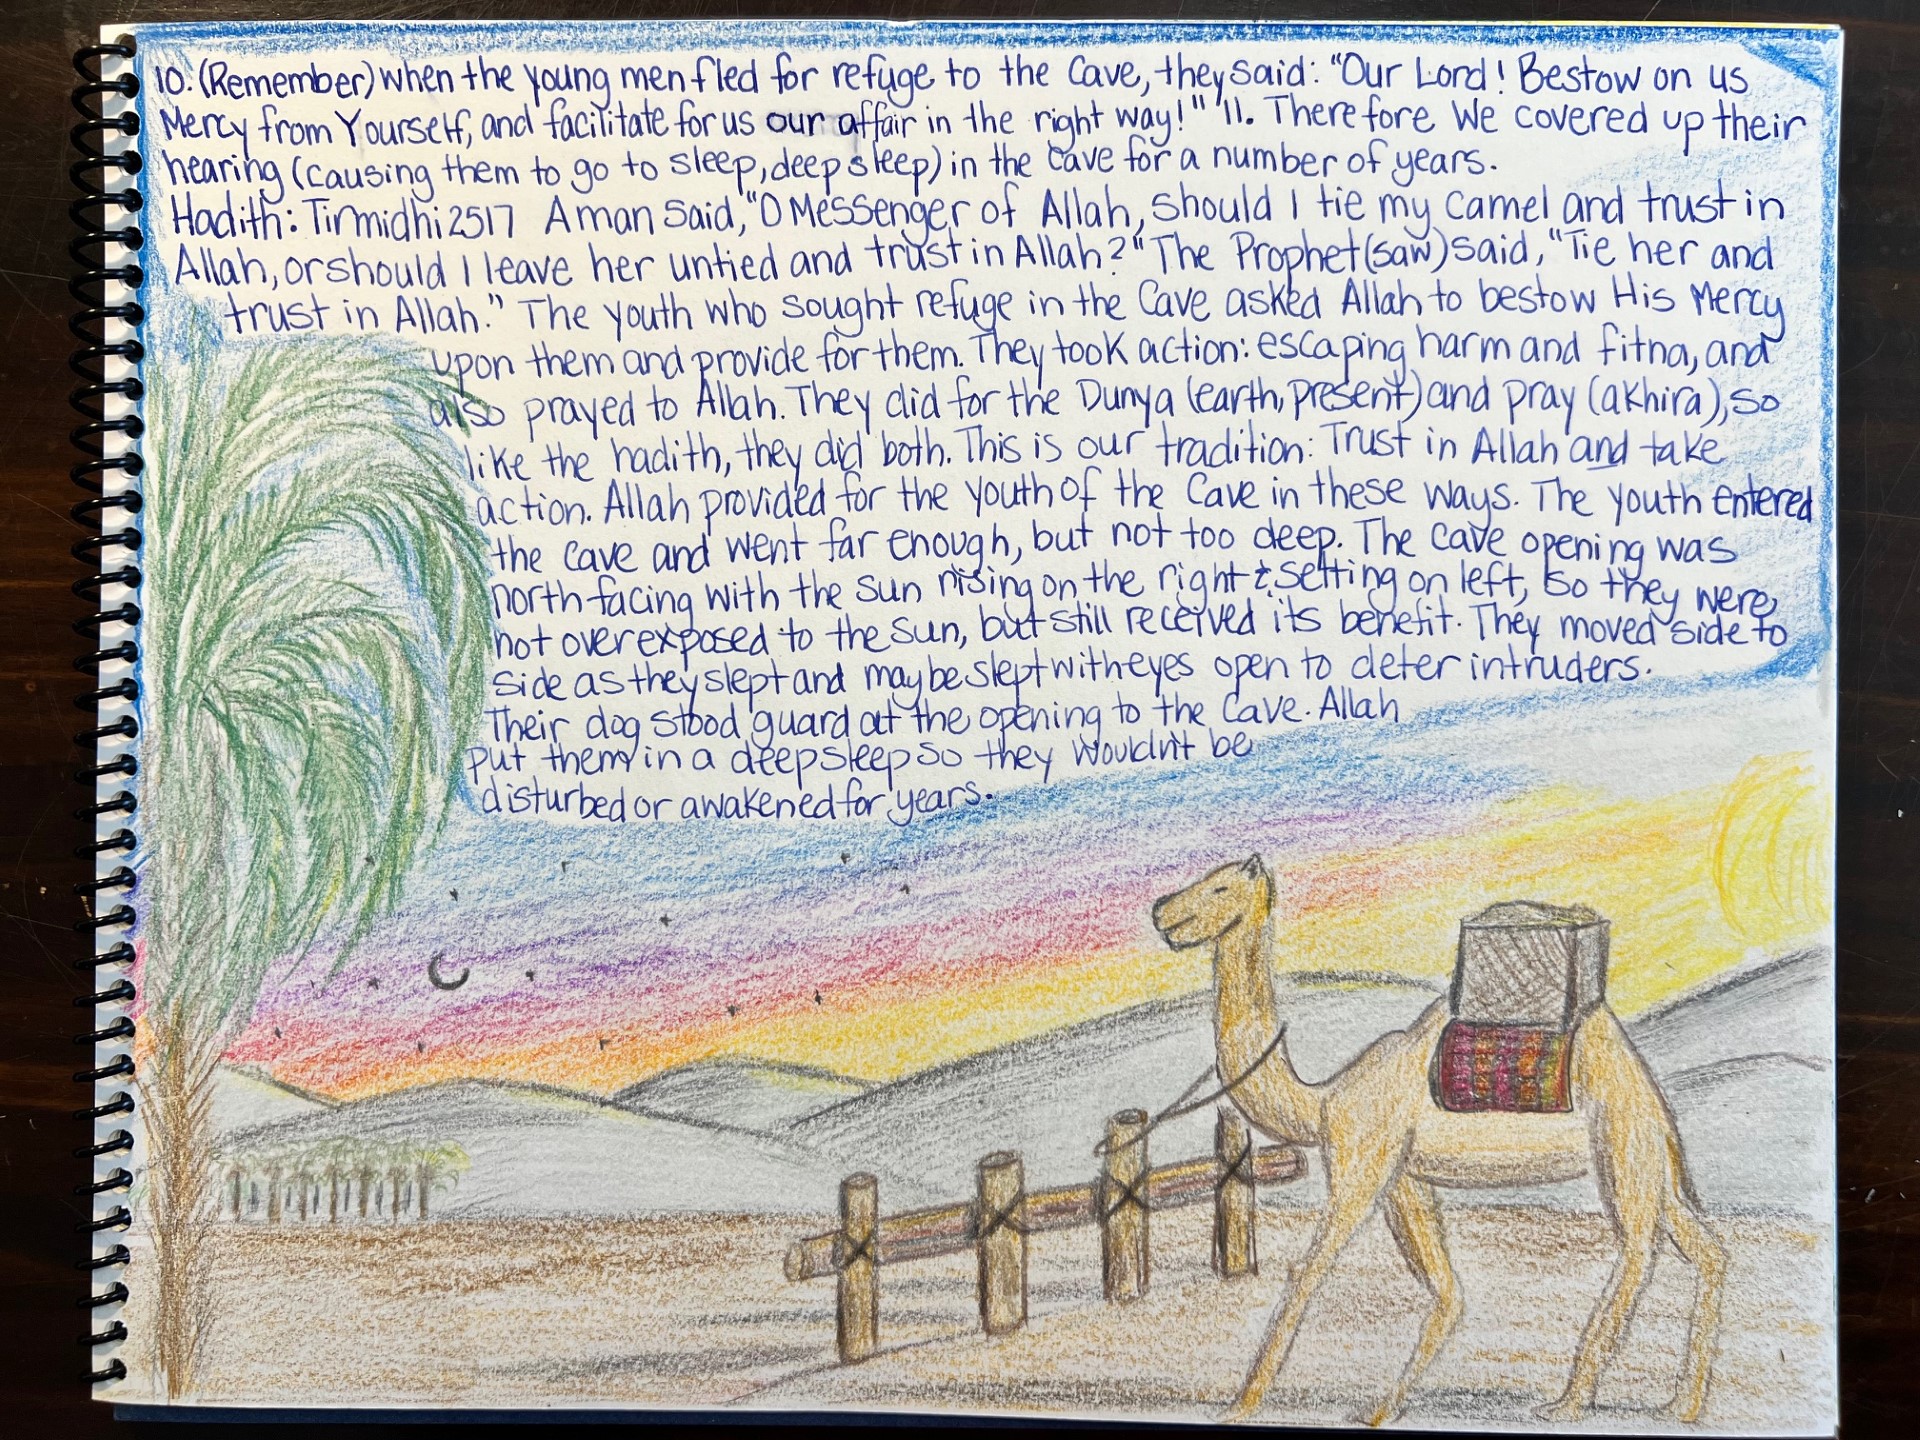 10. (Remember) when the young men fled for refuge to the Cave, they said: "Our Lord! Bestow on us
Mercy from Yourself, and facilitate for us our affair in the right way!" 11. Therefore We covered up their
hearing (causing them to go to sleep, deep sleep) in the Cave for a number of years.
Hadith: Tirmidhi 2517 A man said, "O Messenger of Allah, should I tie my camel and trust in
Allah, or should I leave her untied and trust in Allah?" The Prophet (saw) said, "Tie her and
trust in Allah." The youth who sought refuge in the Cave asked Allah to bestow His Mercy
upon them and provide for them. They took action: escaping harm and fitna, and
also prayed to Allah. They did for the Dunya (earth, present) and pray (akhira), so
like the hadith, they did both. This is our tradition: Trust in Allah and take
action. Allah provided for the youth of the Cave in these ways. The youth entered
the Cave and went far enough, but not too deep. The cave opening was
north facing with the sun rising on the right & setting on left, so they were
not over exposed to the sun, but still received its benefit. They moved side to
side as they slept and maybe slept with eyes open to deter intruders.
Their dog stood guard at the opening to the Cave. Allah
put them in a deep sleep so they wouldn't be
disturbed or awakened for years.